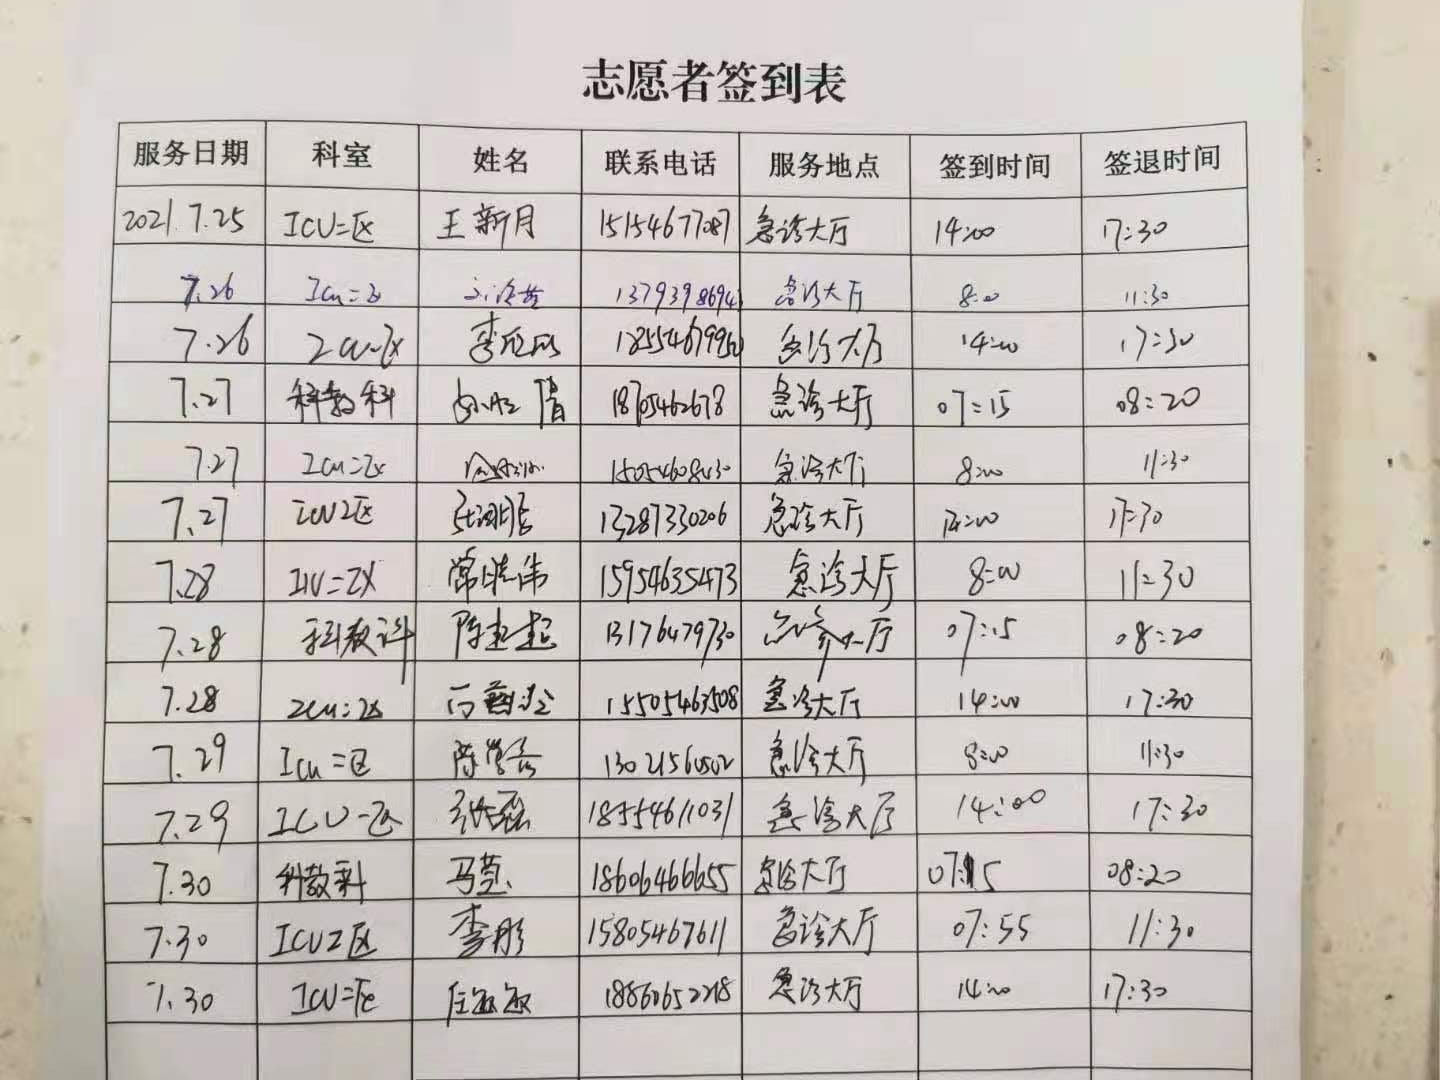 志愿者签到表
服务日期 科室 姓名 联系电话 服务地点 签到时间 签退时间
2021.7.25 ICU=区 王新月 15154677087 急诊大厅 14:00 17:30
7.26 Icu=区 13793986943 急诊大厅 8:00 11:30
7.26 急诊大厅 14:00 17:30
7.27 科教科 18705462678 急诊大厅 07:15 08:20
7.27 Icu=区 15054608430 急诊大厅 8:00 11:30
7.27 ICU2区 13287330206 急诊大厅 14:00 17:30
7.28 常晓伟 15954635473 急诊大厅 8:00 11:30
7.28 科教科 陈建超 13176479730 急诊大厅 07:15 08:20
7.28 15505463508 急诊大厅 14:00 17:30
7.29 Icu=区 急诊大厅 8:00 11:30
7.29 ICU 18554611031 急诊大厅 14:00 17:30
7.30 科教科 18606466655 急诊大厅 07:15 08:20
7.30 ICU2区 李彤 15805467611 急诊大厅 07:55 11:30
7.30 ICU=区 任敏敏 18860652218 急诊大厅 14:00 17:30